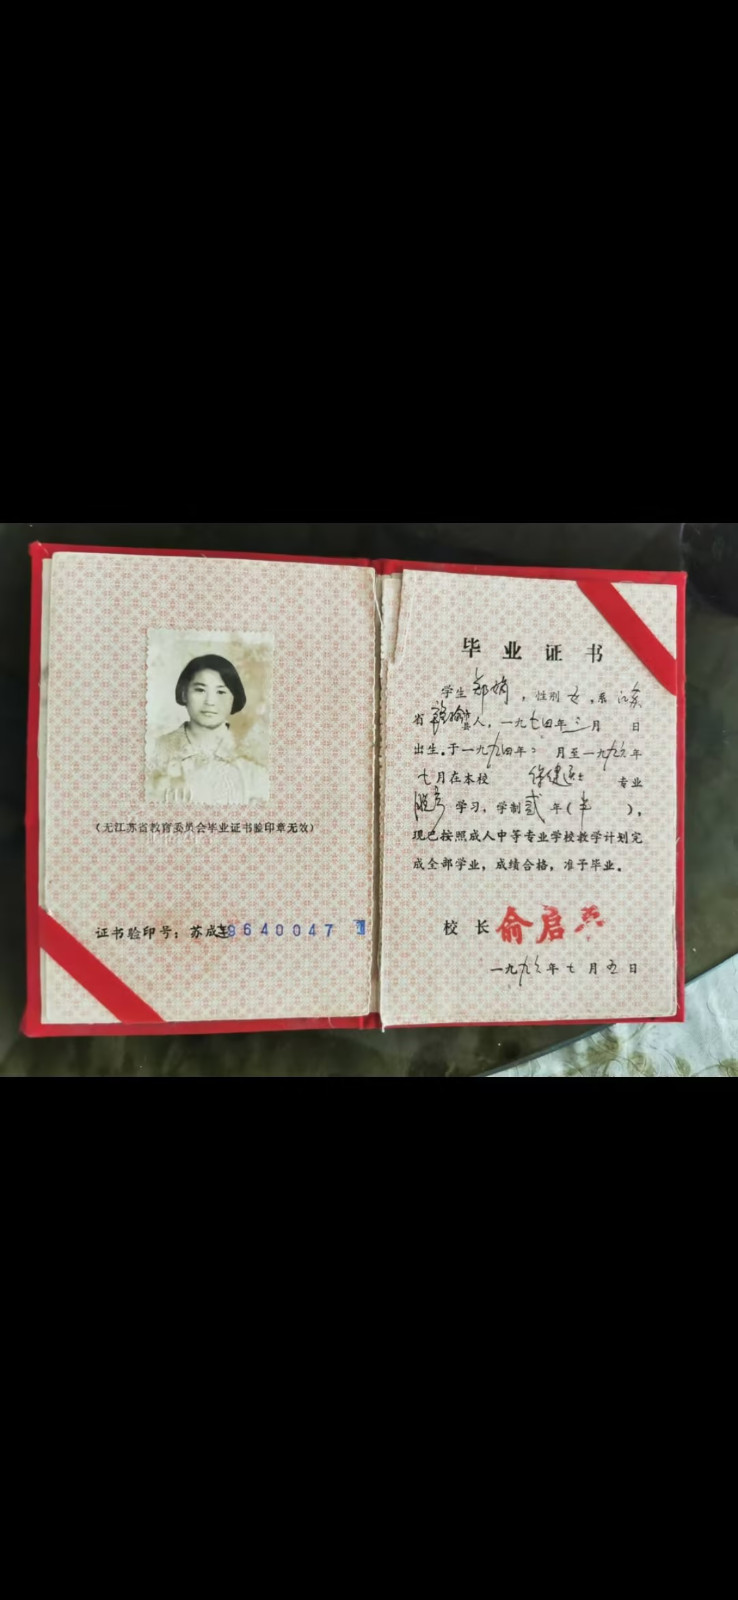 （无江苏省教育委员会毕业证书验印章无效）
证书验印号：苏成连9640047
毕业证书
学生郑娟，性别女，系江苏
省赣榆县人，一九七四年三月 日
出生。于一九九四年 月至一九九六年
七月在本校 专业
学习，学制贰年（ ），
现已按照成人中等专业学校教学计划完
成全部学业，成绩合格，准予毕业。
校长 俞启
一九九六年七月五日